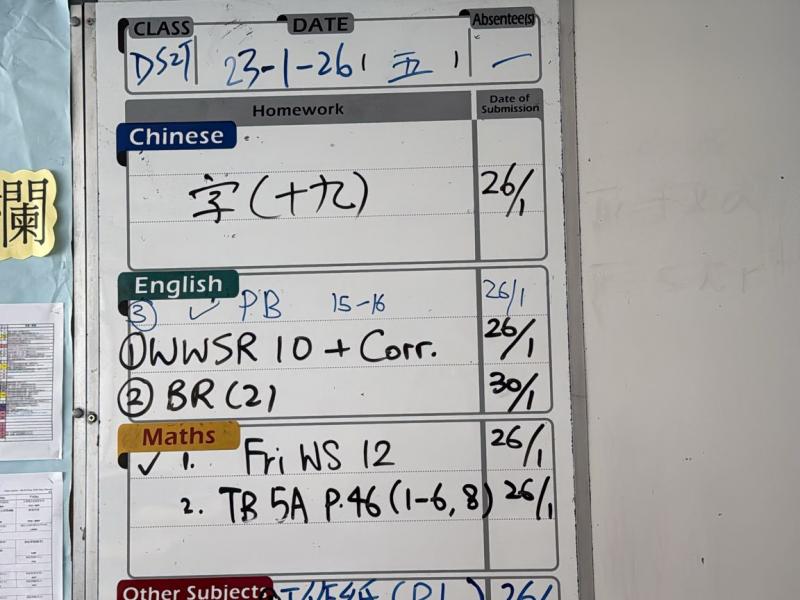 CLASS DATE Absentee(s)
23-1-26 ( 五 ) 一
Homework Date of Submission
Chinese
字(十九) 26/1
English
③ ✓ PB 15-16 26/1
① WWSR 10 + Corr. 26/1
② BR (2) 30/1
Maths
✓ 1. Fri WS 12 26/1
2. TB 5A P.46 (1-6, 8) 26/1
Other Subjects (P1) 26/
欄